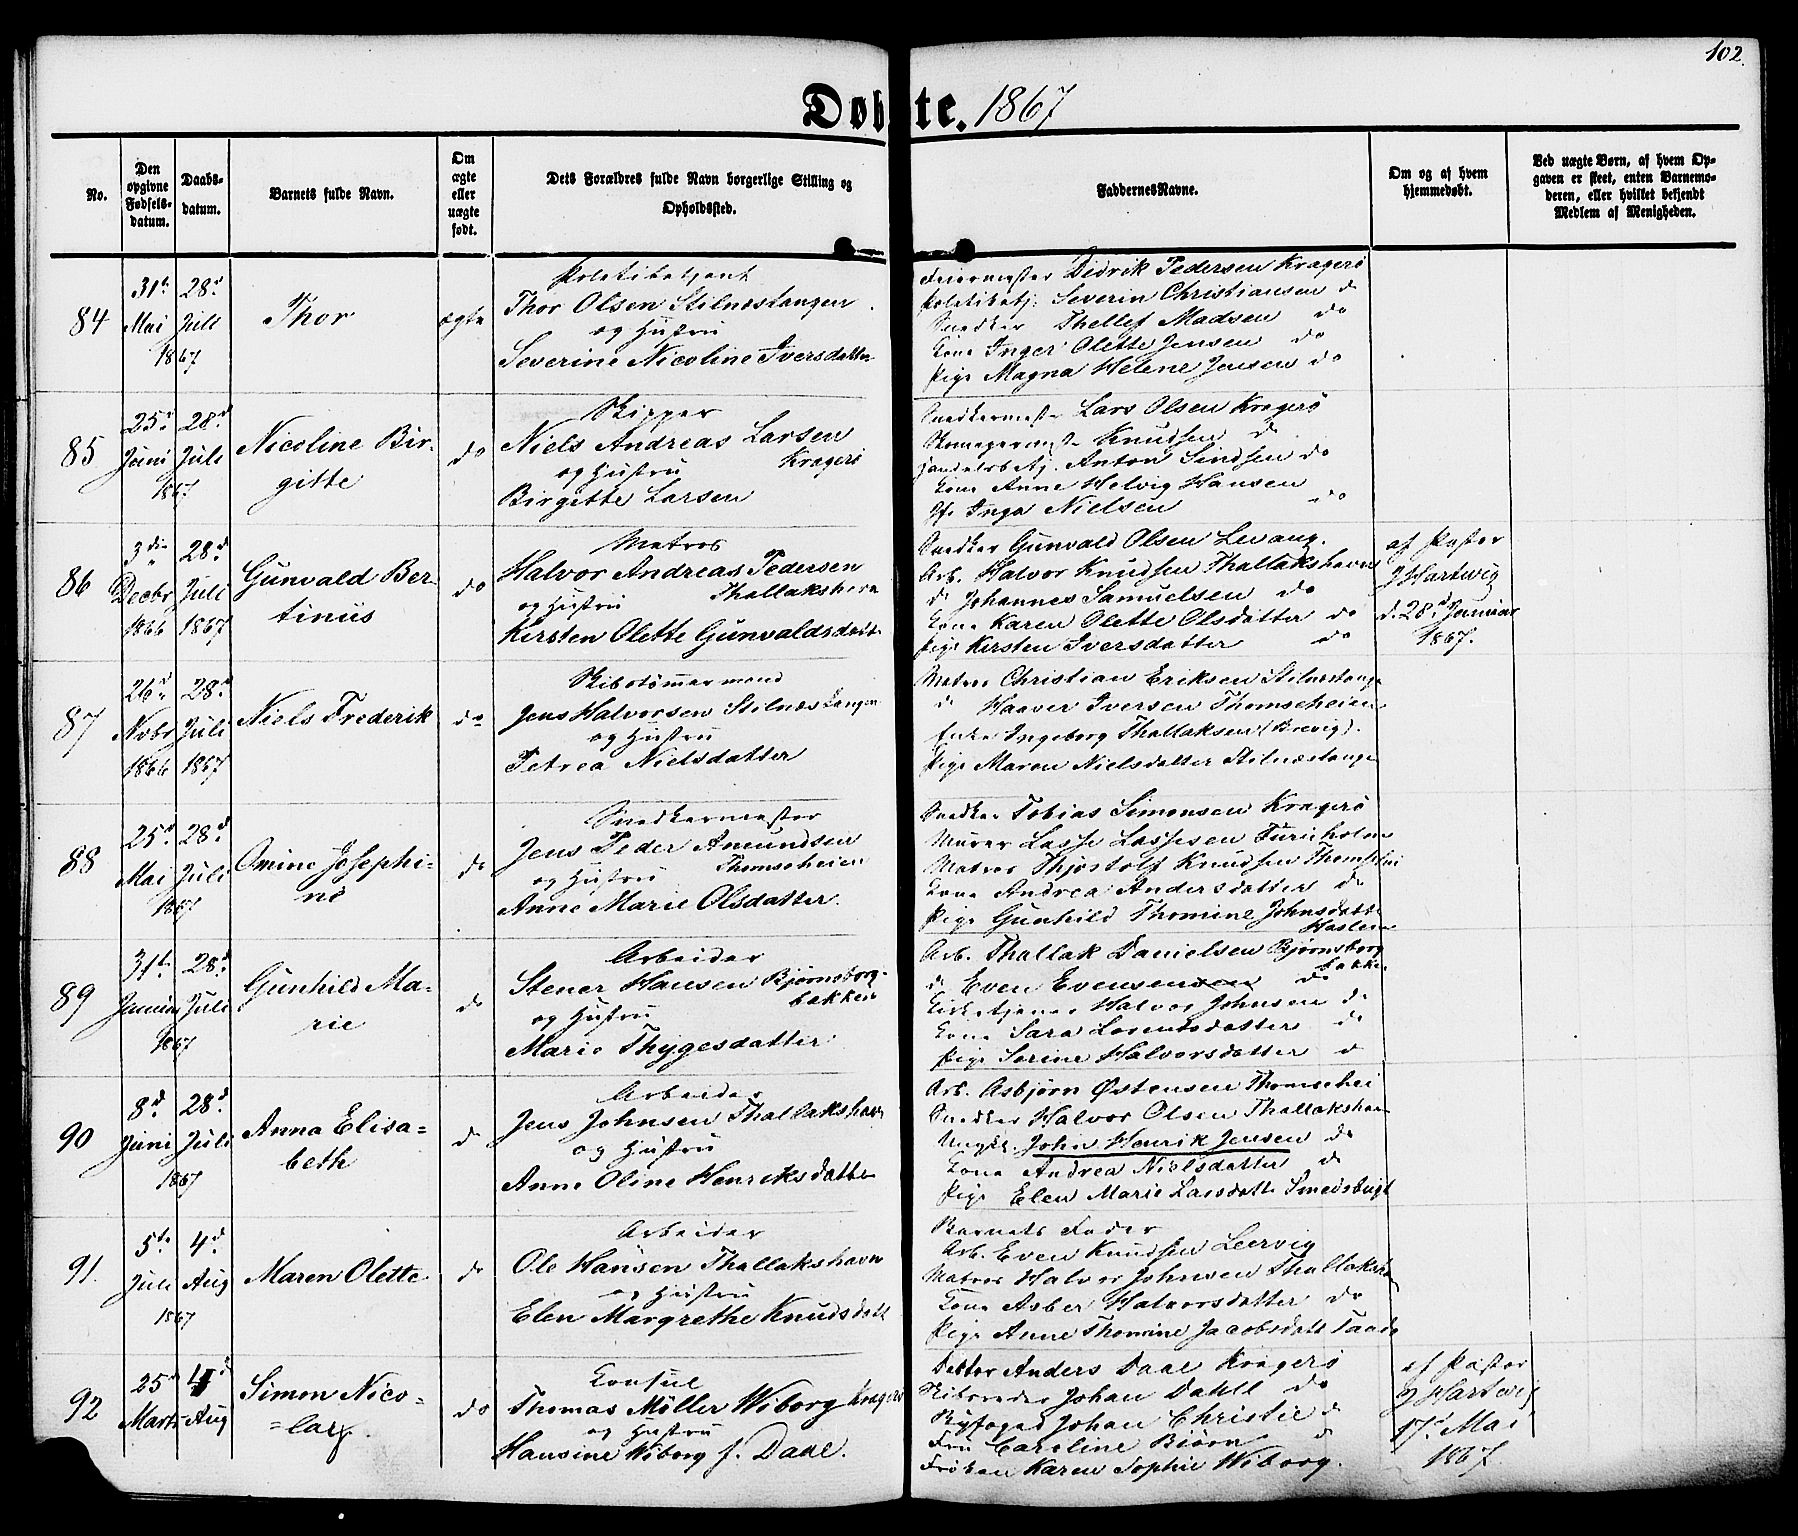 102.
Døbte. 1867
No.
Den opgivne Fødsels-datum.
Daabs-datum.
Barnets fulde Navn.
Om ægte eller uægte født.
Dets Forældres fulde Navn borgerlige Stilling og Opholdssted.
FaddernesNavne.
Om og af hvem hjemmedøbt.
Ved uægte Børn, af hvem Op-
gaven er skeet, enten Barnemo-
deren, eller hvilket bekjendt
Medlem af Menigheden.
84
31te Mai 1867
28d Juli
Thor
ægte
Politibetjent
Thor Olsen Stilnæstangen
og Hustru
Severine Nicoline Iversdatter
Feiermester Didrik Pedersen Kragerö
Politibetj. Severin Christiansen do
Snedker Thellef Madsen do
Kone Inger Olette Jensen do
Pige Magna Helene Jensen do
85
25d Juni 1867
28d Juli
Nicoline Bir-
gitte
do
Skipper
Niels Andreas Larsen
og Hustru Kragerö
Birgitte Larsen
Snedkermester Lars Olsen Kragerö
Skomagermest. Knudsen do
Handelsbetj. Anton Lindsen do
Kone Anne Helvig Hansen
Inga Nielsen do
86
3die Decbr 1866
28d Juli 1867
Gunvald Ber-
tinus
do
Matros
Halvor Andreas Pedersen
og Hustru Thallakshavn
Kirsten Olette Gunvaldsdatt
Snedker Gunvald Olsen Levang.
Arb. Halvor Knudsen Thallakshavn
do Johannes Samuelsen do
Kone Karen Olette Olsdatter do
Pige Kirsten Iversdatter do
af Pastor
J Hartwig
d. 28d Januar
1867.
87
26d Novbr 1866
28d Juli 1867
Niels Frederik
do
Skibstømmermand
Jens Halvorsen Stilnæstangen
og Hustru
Petrea Nielsdatter
Matros Christian Eriksen Stilnæstange
do Haaver Iversen Thomeseheien
Enke Ingeborg Thallaksen (Brevig).
Pige Maren Nielsdatter Stilnæstange
88
25d Mai 1867
28d Juli
Omine Josephi-
ne
do
Snedkermester
Jens Peder Amundsen
og Hustru Thomeseheien
Anne Marie Olsdatter.
Snedker Tobias Simonsen Kragerö
Murer Lasse Lassesen Furuholmen
Matros Thjostolf Knudsen Thomeshei
Kone Andrea Andersdatter do
Pige Gunhild Thomine Johnsdatt
Haslem
89
31te Januar 1867
28d Juli
Gunhild Ma-
rie
do
Arbeider
Stener Hansen Bjørnsborg-
og Hustru bakken
Marie Thygesdatter
Arb. Thallak Danielsen Bjørnsborg
bakken
do Even Evensen do
Kirketjener Halvor Johnsen do
Kone Sara Lorentsdatter do
Pige Sorine Halvorsdatter do
90
8d Juni 1867
28d Juli
Anna Elisa-
beth
do
Arbeider
Jens Johnsen Thallakshavn
og Hustru
Anne Oline Henriksdatter
Arb. Asbjørn Østensen Thomeshei
Snedker Halvor Olsen Thallakshavn
Ungk. John Henrik Jensen do
Kone Andrea Nielsdatter do
Pige Elen Marie Larsdatt Smedsbugt
91.
5te Juli 1867
4d Aug
Maren Olette
do
Arbeider
Ole Hansen Thallakshavn
og Hustru
Elen Margrethe Knudsdatt
Barnets Fader
Arb. Even Knudsen Leervig
Matros Halvor Johnsen Thallakshavn
Kone Asber Halvorsdatter do
Pige Anne Thomine Jacobsdatt Taade
92
25d Marts
4d Aug
Simon Nico-
-lay.
do
Consul
Thomas Möller Wiborg Kragerö
og Hustru
Hansine Wiborg f. Daae.
Doktor Anders Daae Kragerö
Skibsreder Johan Dahll do
Byfoged Johan Christie do
Fru Caroline Biörn do
Frøken Karen Sophie Wiborg.
af Pastor
J Hartwig
17d Mai
1867.